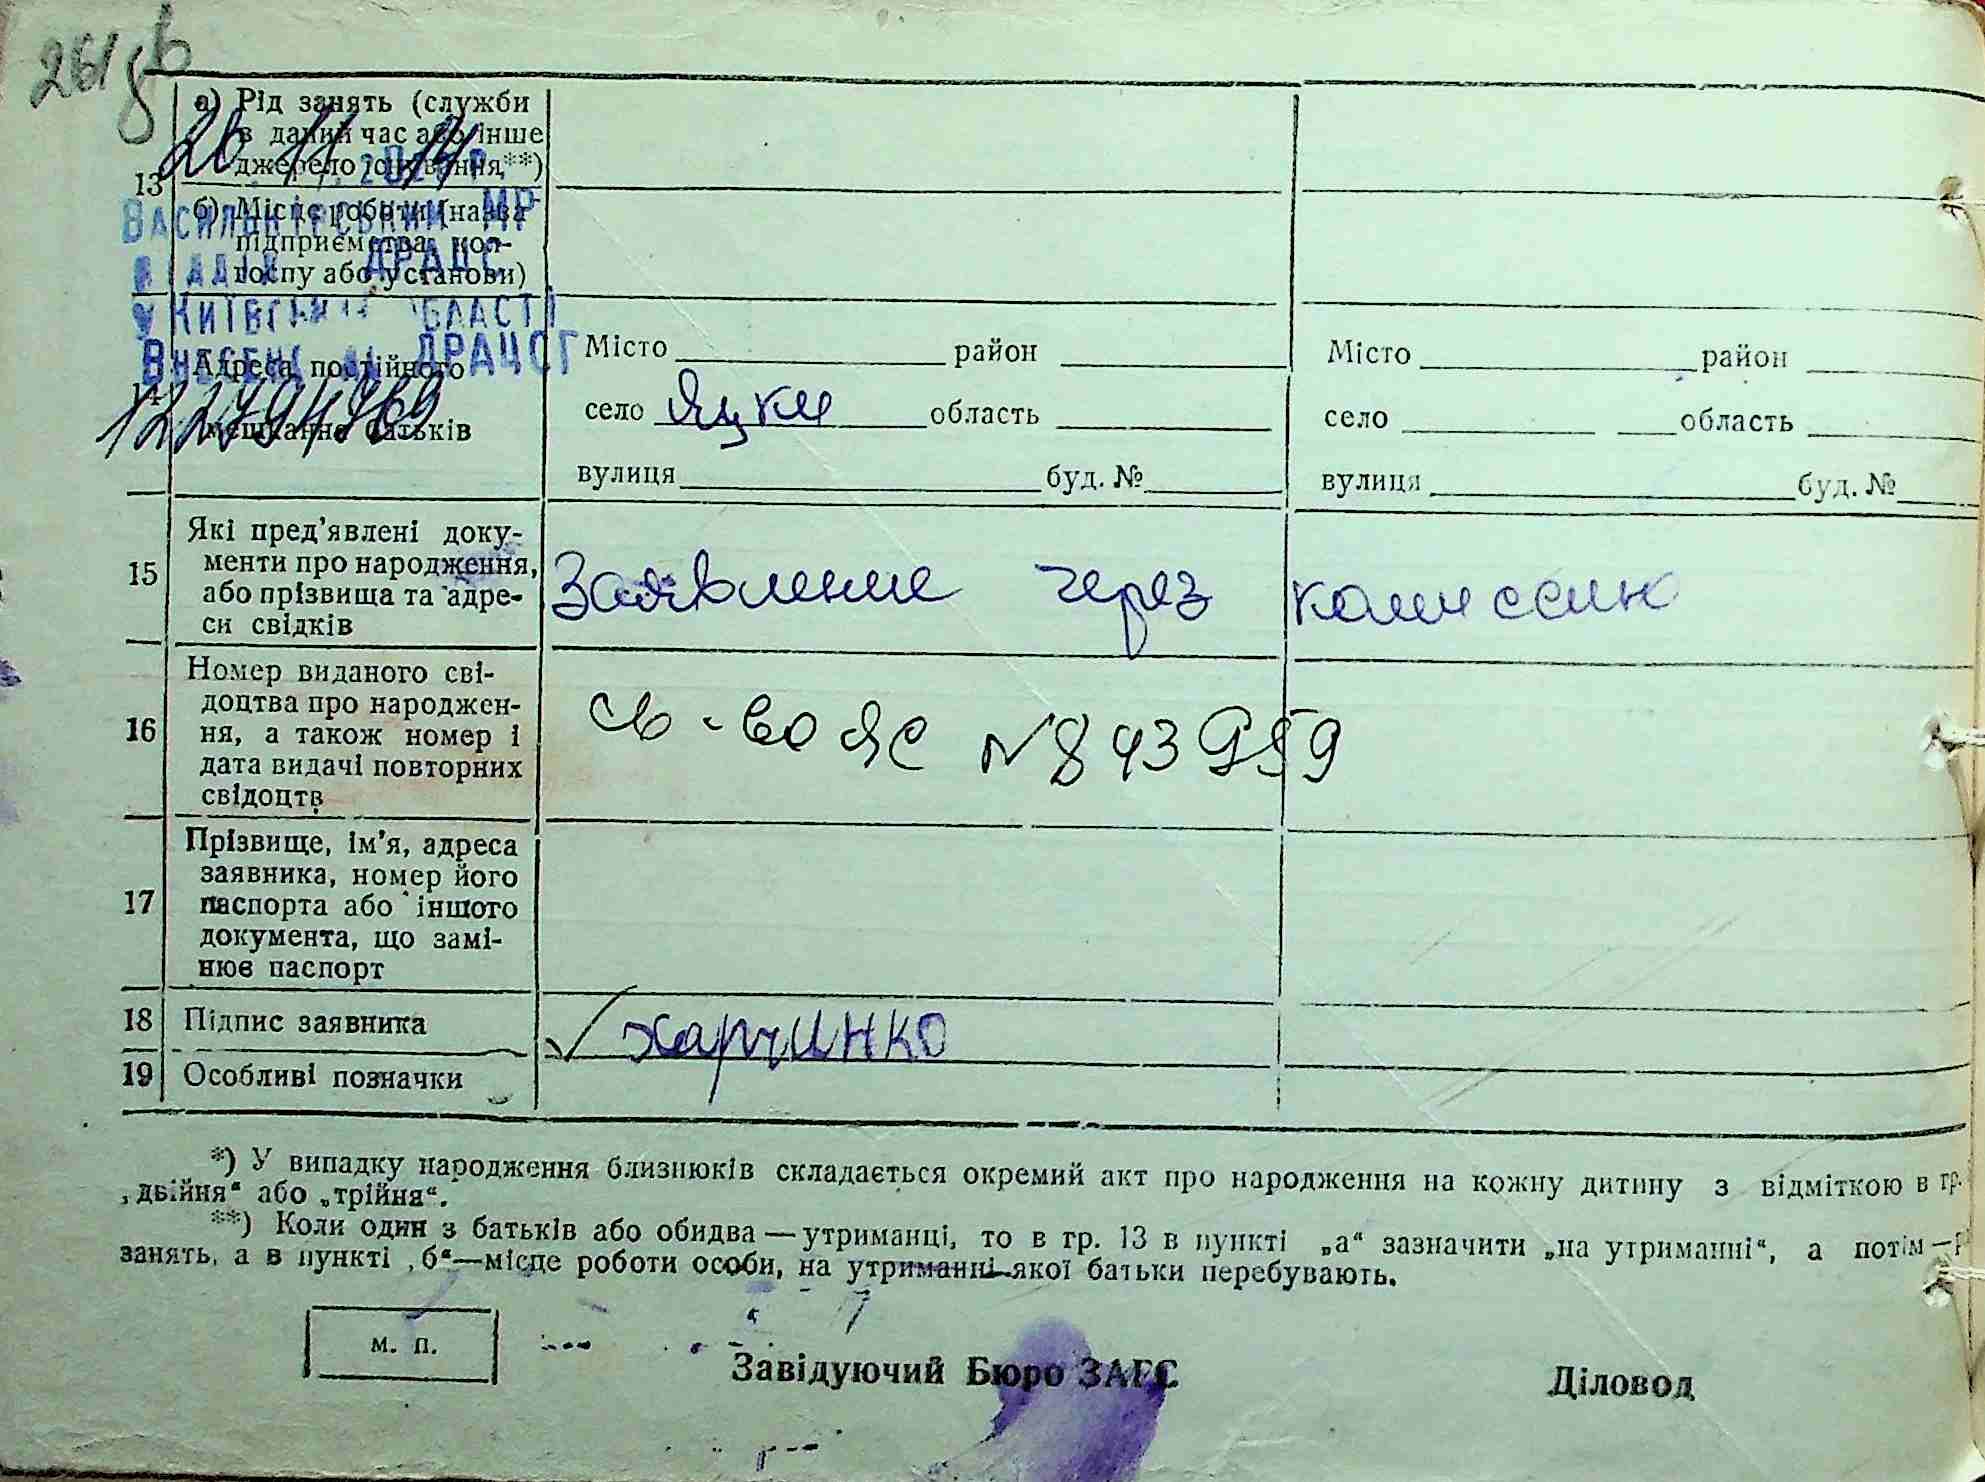 261зв
а) Рід занять (служби
в даний час або інше
джерело існування**)
26 11 14
13
б) Місце роботи (назва
підприємства, кол-
госпу або установи)
Васильківський МР
відділ ДРАЦС
у Київській області
Внесено ДРАЦСГ
Місто район
Місто район
Адреса постійного
мешкання батьків
село Яцки область
село область
вулиця буд. №
вулиця буд. №
15
Які пред'явлені доку-
менти про народження,
або прізвища та адре-
си свідків
Заявление через комиссию
16
Номер виданого сві-
доцтва про народжен-
ня, а також номер і
дата видачі повторних
свідоцтв
св-во ЯС №843959
17
Прізвище, ім'я, адреса
заявника, номер його
паспорта або іншого
документа, що замі-
нює паспорт
18 Підпис заявника Харчинко
19 Особливі позначки
*) У випадку народження близнюків складається окремий акт про народження на кожну дитину з відміткою в гр.
„двійня“ або „трійня“.
**) Коли один з батьків або обидва—утриманці, то в гр. 13 в пункті „а“ зазначити „на утриманні“, а потім —
занять, а в пункті „б“—місце роботи особи, на утриманні якої батьки перебувають.
М. П.
Завідуючий Бюро ЗАГС
Діловод